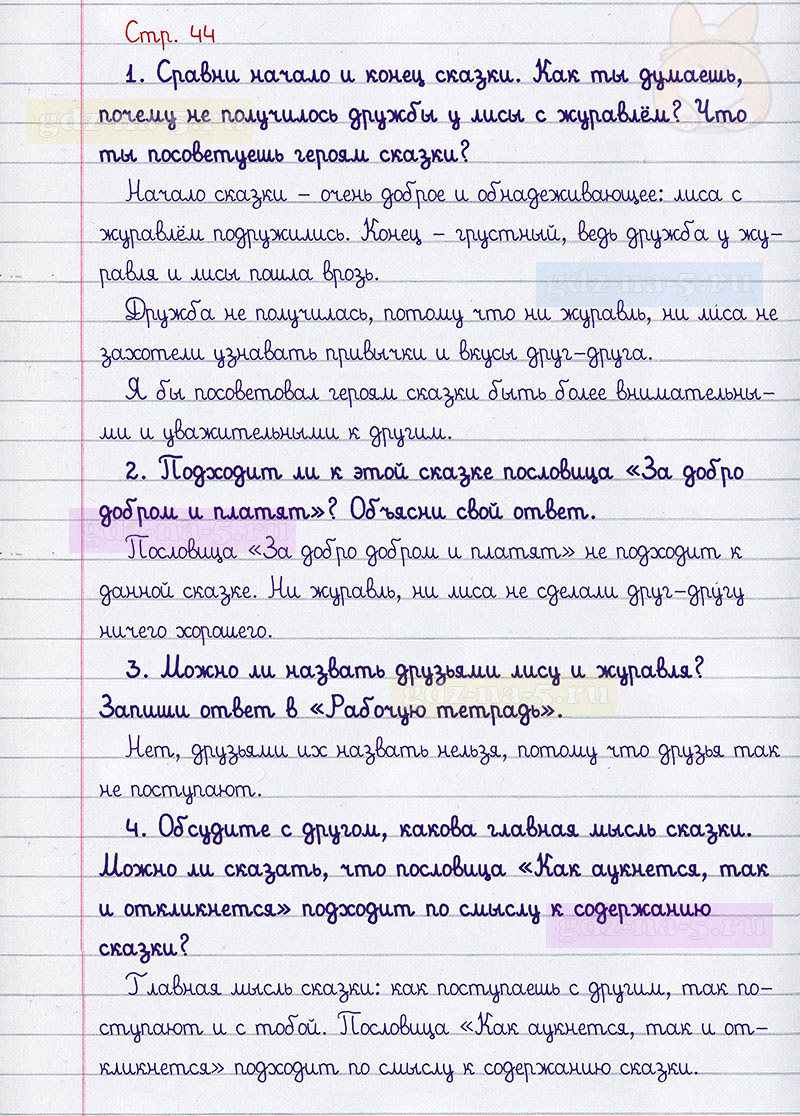 Стр. 44
1. Сравни начало и конец сказки. Как ты думаешь,
почему не получилось дружбы у лисы с журавлём? Что
ты посоветуешь героям сказки?
Начало сказки – очень доброе и обнадеживающее: лиса с
журавлём подружились. Конец – грустный, ведь дружба у жу-
равля и лисы пошла врозь.
Дружба не получилась, потому что ни журавль, ни лиса не
захотели узнавать привычки и вкусы друг-друга.
Я бы посоветовал героям сказки быть более внимательны-
ми и уважительными к другим.
2. Подходит ли к этой сказке пословица «За добро
добром и платят»? Объясни свой ответ.
Пословица «За добро добром и платят» не подходит к
данной сказке. Ни журавль, ни лиса не сделали друг-другу
ничего хорошего.
3. Можно ли назвать друзьями лису и журавля?
Запиши ответ в «Рабочую тетрадь».
Нет, друзьями их назвать нельзя, потому что друзья так
не поступают.
4. Обсудите с другом, какова главная мысль сказки.
Можно ли сказать, что пословица «Как аукнется, так
и откликнется» подходит по смыслу к содержанию
сказки?
Главная мысль сказки: как поступаешь с другим, так по-
ступают и с тобой. Пословица «Как аукнется, так и от-
кликнется» подходит по смыслу к содержанию сказки.
gdz-na-5.ru
gdz-na-5.ru
gdz-na-5.ru
gdz-na-5.ru
gdz-na-5.ru